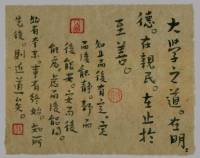 大學之道。在明
德。在親民。在止於
至善。
知止而后有定。定
而後能靜。靜而
後能安。安而後
能慮。慮而后能得
物有本末。事有終始。知所
先後。則近道矣。